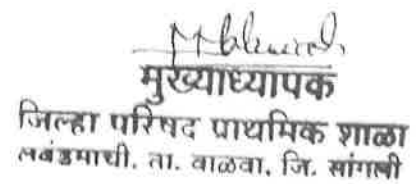 मुख्याध्यापक
जिल्हा परिषद प्राथमिक शाळा
लवंडमाची, ता. वाळवा, जि. सांगली